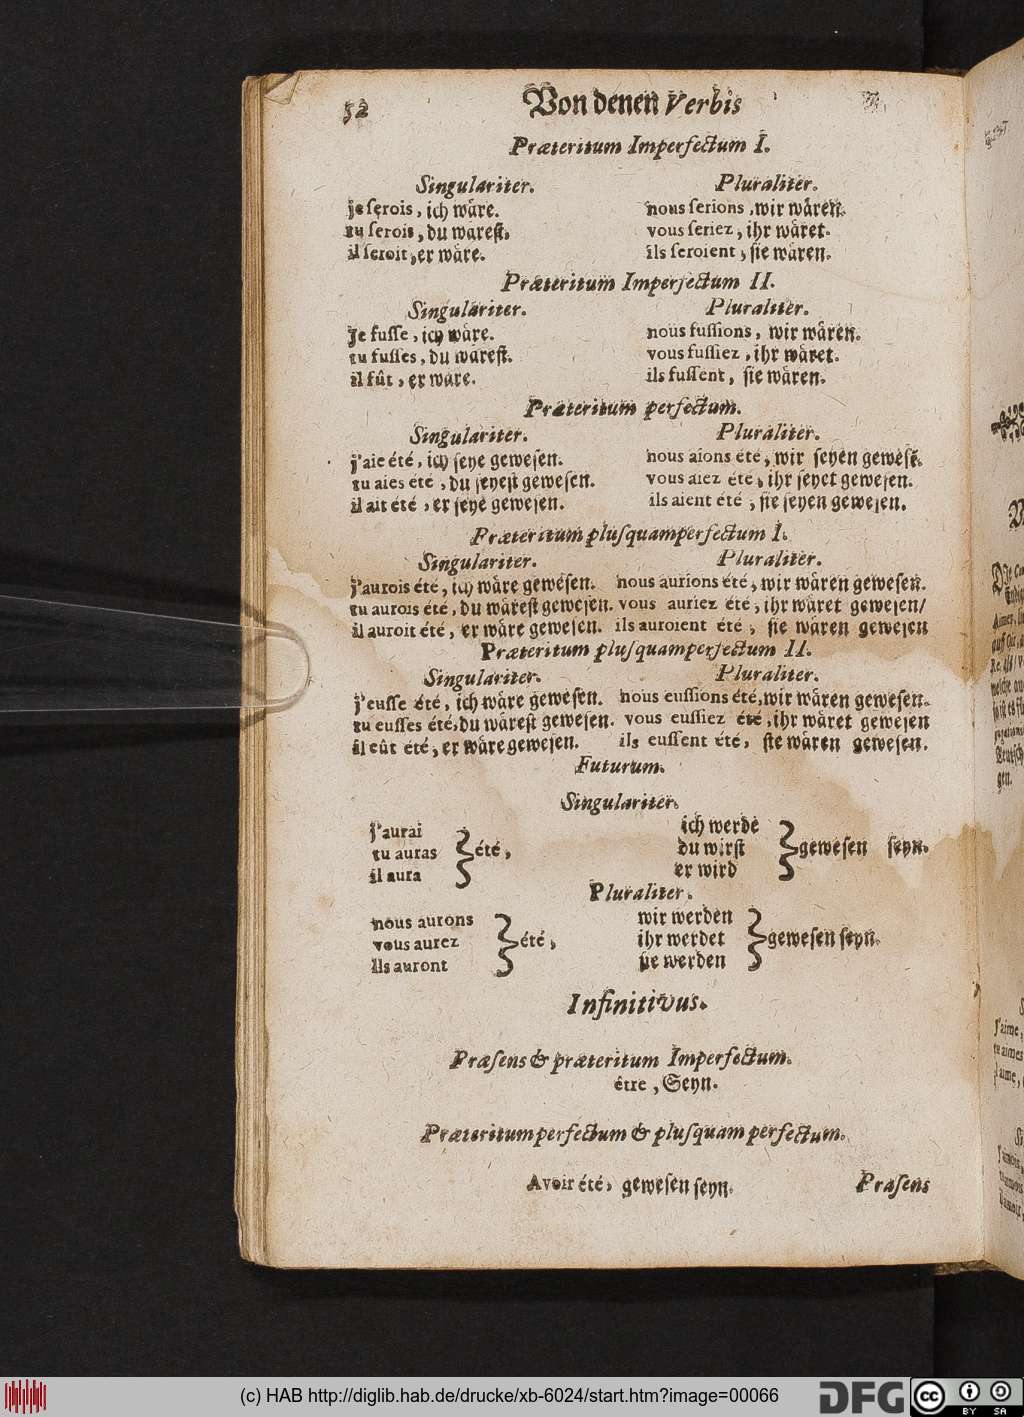 52 Von denen Verbis
Præteritum Imperfectum I.
Singulariter. Pluraliter.
je ſerois, ich wåre. nous ſerions, wir wåren.
tu ſerois, du wåreſt. vous ſeriez, ihr wåret.
il ſeroit, er wåre. ils ſeroient, ſie wåren.
Præteritum Imperfectum II.
Singulariter. Pluraliter.
Je fuſſe, ich wåre. nous fuſſions, wir wåren.
tu fuſſes, du wåreſt. vous fuſſiez, ihr wåret.
il fût, er wåre. ils fuſſent, ſie wåren.
Præteritum perfectum.
Singulariter. Pluraliter.
j'aie été, ich ſeye geweſen. nous aions été, wir ſeyen geweſẽ.
tu aies été, du ſeyeſt geweſen. vous aiez été, ihr ſeyet geweſen.
il ait été, er ſeye geweſen. ils aient été, ſie ſeyen geweſen.
Præteritum pluſquamperfectum I.
Singulariter. Pluraliter.
j'aurois été, ich wåre geweſen. nous aurions été, wir wåren geweſen.
tu aurois été, du wåreſt geweſen. vous auriez été, ihr wåret geweſen/
il auroit été, er wåre geweſen. ils auroient été, ſie wåren geweſen
Præteritum pluſquamperfectum II.
Singulariter. Pluraliter.
j'euſſe été, ich wåre geweſen. nous euſſions été, wir wåren geweſen.
tu euſſes été, du wåreſt geweſen. vous euſſiez été, ihr wåret geweſen
il eût été, er wåre geweſen. ils euſſent été, ſie wåren geweſen.
Futurum.
Singulariter.
j'aurai ich werde
tu auras été, du wirſt geweſen ſeyn.
il aura er wird
Pluraliter.
nous aurons wir werden
vous aurez été, ihr werdet geweſen ſeyn.
ils auront ſie werden
Infinitivus.
Præſens & præteritum Imperfectum.
être, Seyn.
Præteritum perfectum & pluſquam perfectum.
Avoir été, geweſen ſeyn.
Præſens
(c) HAB http://diglib.hab.de/drucke/xb-6024/start.htm?image=00066
DFG
cc BY SA